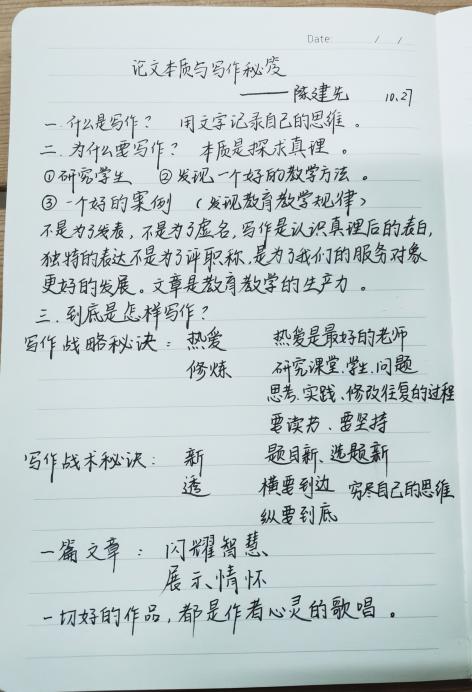 Date: / /
论文本质与写作秘笈
——陈建先 10.27
一.什么是写作? 用文字记录自己的思维。
二.为什么要写作? 本质是探求真理。
①研究学生 ②发现一个好的教学方法。
③一个好的案例 (发现教育教学规律)
不是为了发表,不是为了虚名,写作是认识真理后的表白,
独特的表达不是为了评职称,是为了我们的服务对象
更好的发展。文章是教育教学的生产力。
三.到底是怎样写作?
写作战略秘诀: 热爱 热爱是最好的老师
修炼 研究课堂.学生.问题
思考.实践、修改往复的过程
要读书、要坚持
写作战术秘诀: 新 题目新、选题新
透 横要到边 穷尽自己的思维
纵要到底
一篇文章: 闪耀智慧
展示情怀
一切好的作品,都是作者心灵的歌唱。